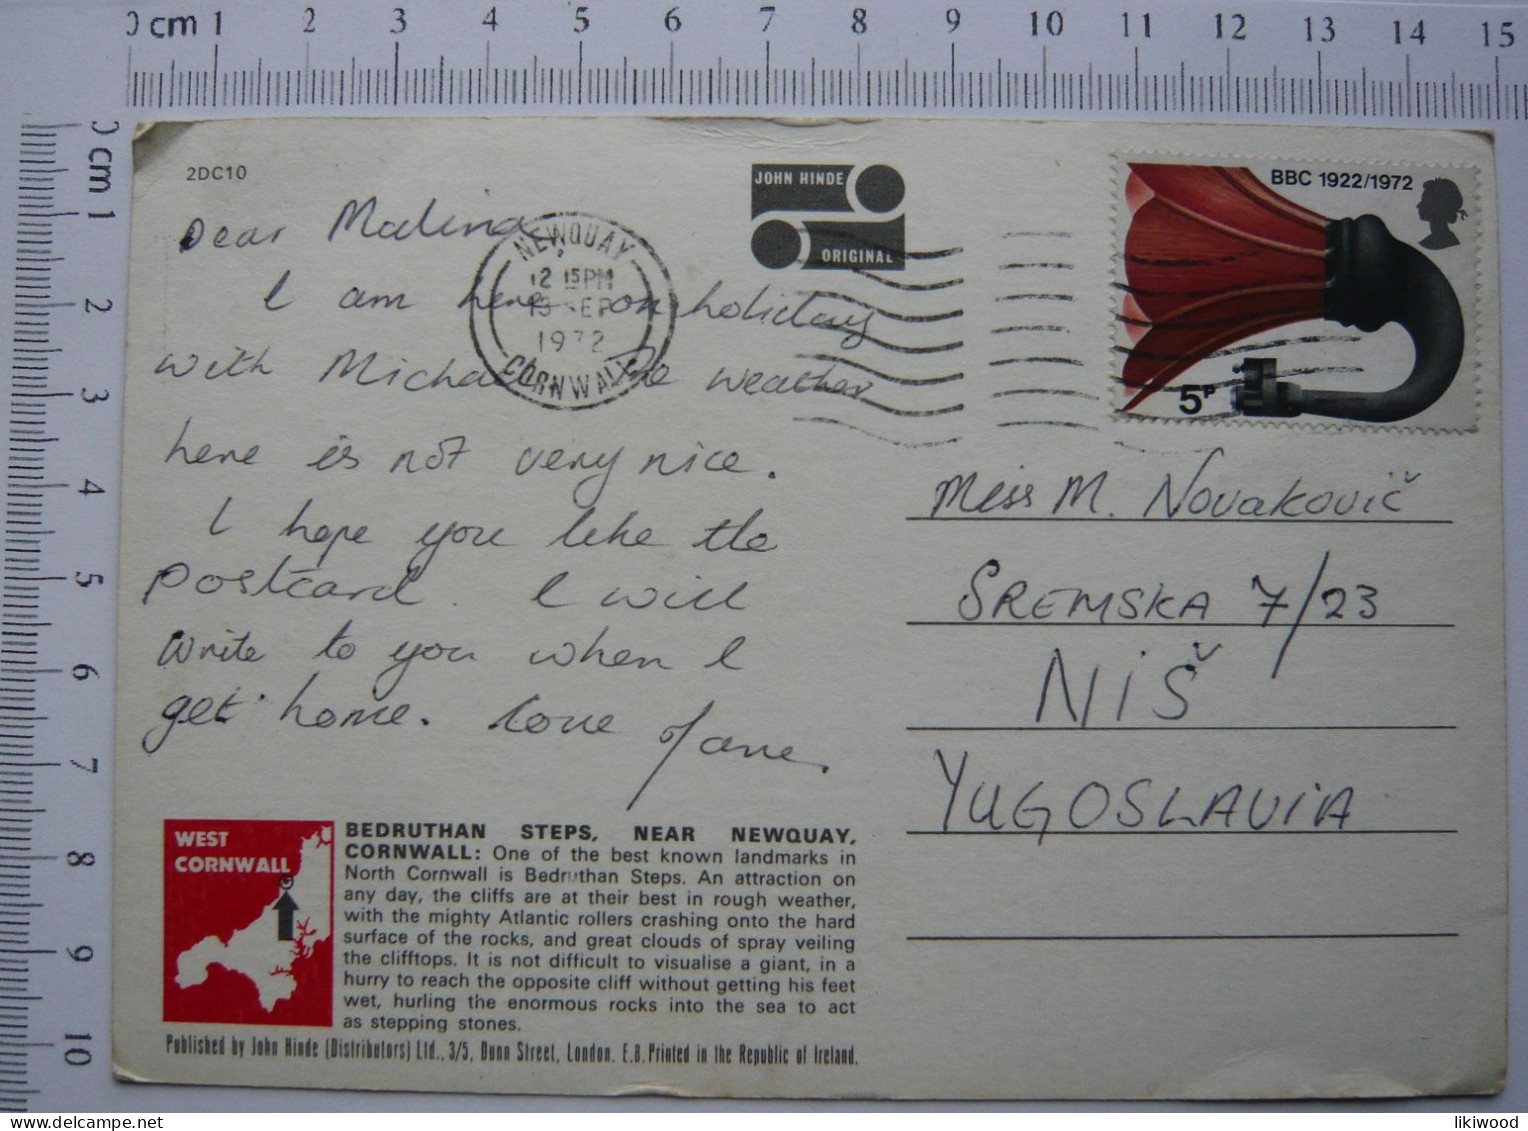 0 cm 1 2 3 4 5 6 7 8 9 10 11 12 13 14 15
0 cm 1 2 3 4 5 6 7 8 9 10
2DC10
JOHN HINDE
ORIGINAL
BBC 1922/1972
5P
NEWQUAY
12 15 PM
1972
CORNWALL
Dear Malina
I am here on holiday
with Michael The weather
here is not very nice.
I hope you like the
postcard. I will
write to you when I
get home. Love Jane.
Miss M. Novakovič
SREMSKA 7/23
NiŠ
YUGOSLAVIA
WEST
CORNWALL
BEDRUTHAN STEPS, NEAR NEWQUAY,
CORNWALL: One of the best known landmarks in
North Cornwall is Bedruthan Steps. An attraction on
any day, the cliffs are at their best in rough weather,
with the mighty Atlantic rollers crashing onto the hard
surface of the rocks, and great clouds of spray veiling
the clifftops. It is not difficult to visualise a giant, in a
hurry to reach the opposite cliff without getting his feet
wet, hurling the enormous rocks into the sea to act
as stepping stones.
Published by John Hinde (Distributors) Ltd., 3/5, Dunn Street, London. E.8. Printed in the Republic of Ireland.
likiwood